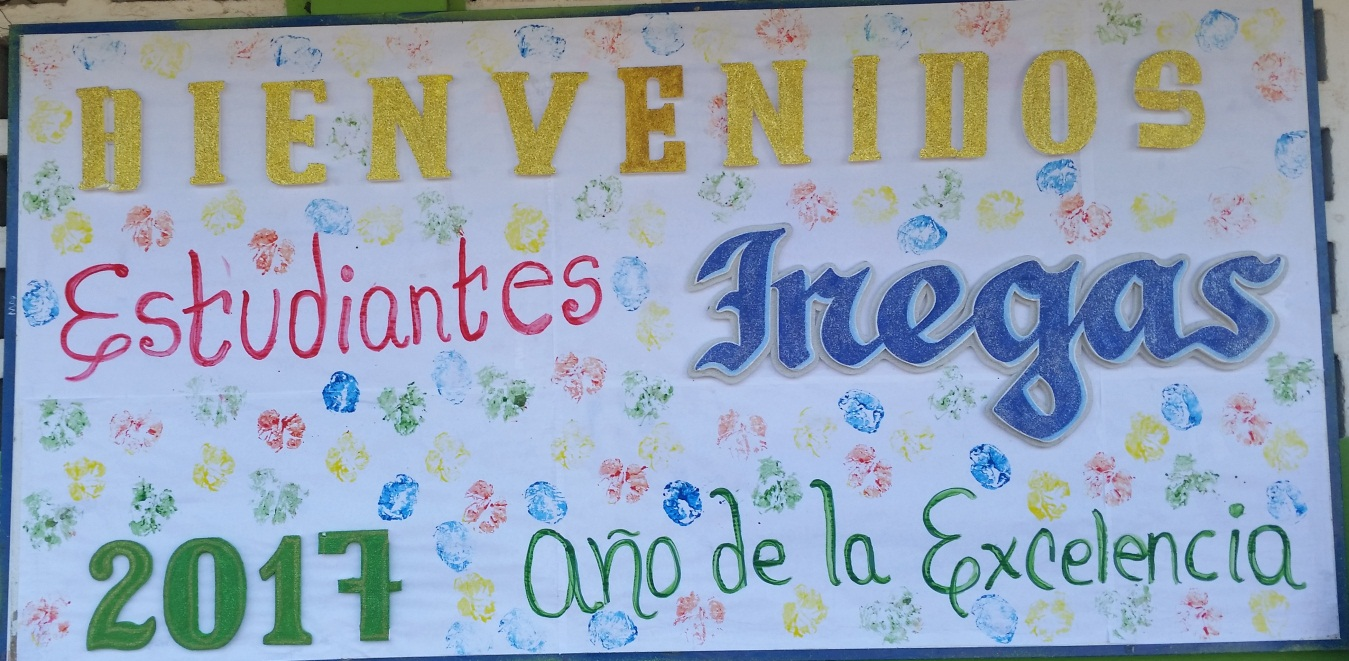 BIENVENIDOS
Estudiantes Inegas
2017 año de la Excelencia